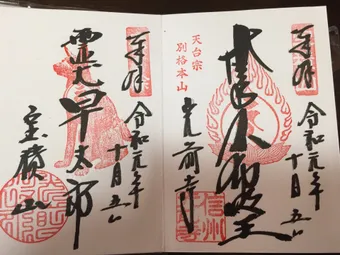 奉拝
令和元年十月五日
本尊不動明王
天台宗
別格本山
光前寺
奉拝
令和元年十月五日
霊犬早太郎
宝積山